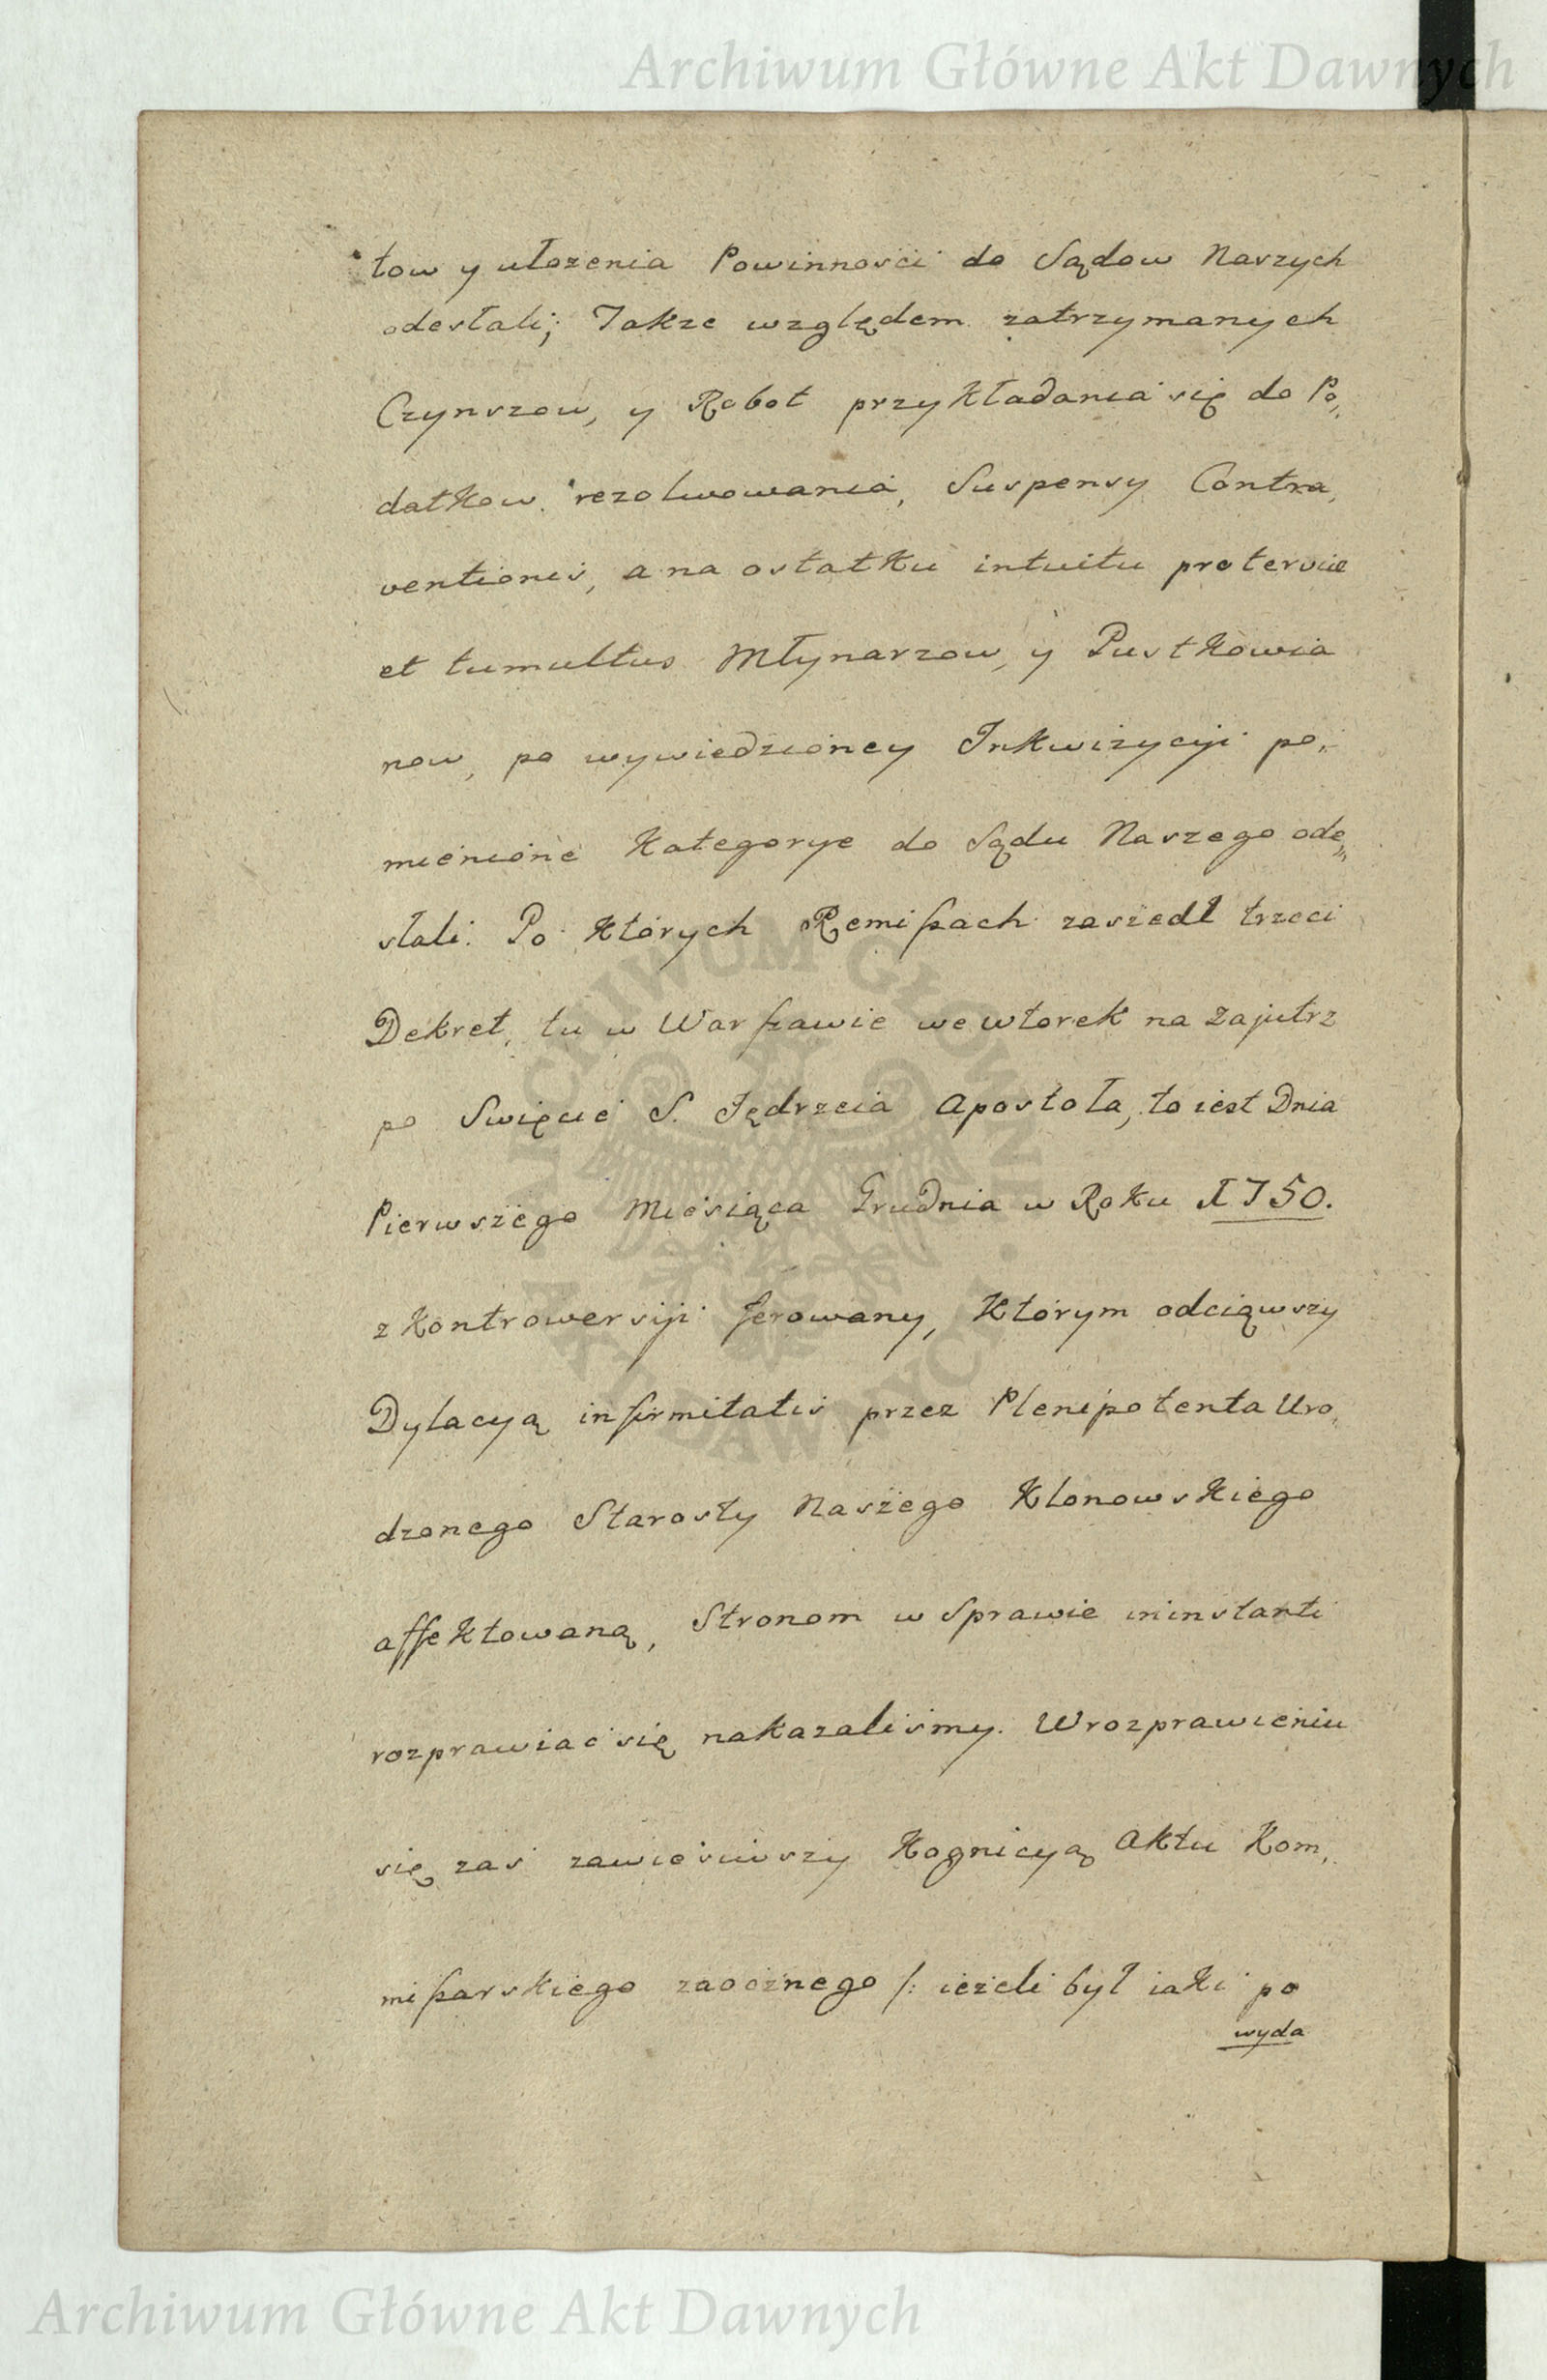 Archiwum Główne Akt Dawnych
tow y ułozenia Powinnosci do Sądow Naszych
odesłali; Takze względem zatrzymanych
Czynszow, y Robot przykładania się do Po„
datkow rezolwowania, Suspensy Contra„
ventionis, a na ostatku intuitu proterviæ
et tumultus Młynarzow, y Pustkowia
now, po wywiedzioney Inkwizycyi po„
mienione Kategorye do Sądu Naszego ode„
słali. Po Których Remißach zaszedł trzeci
Dekret, tu w Warszawie we wtorek na zajutrz
po Swięcie S. Jędrzeia Apostoła, to iest Dnia
Pierwszego Miesiąca Grudnia w Roku 1750.
z Kontrowersyi ferowany, Którym odciąwszy
Dylacyą infirmitatis przez Plenipotenta Uro„
dzonego Starosty Naszego Klonowskiego
affektowaną, Stronom w Sprawie ininstanti
rozprawiac się nakazalismy. W rozprawieniu
się zas zawiesiwszy Kognicyą Aktu Kom„
mißarskiego zaocznego /: ieżeli był iaki po
wyda
ARCHIWUM GŁÓWNE AKT DAWNYCH
Archiwum Główne Akt Dawnych